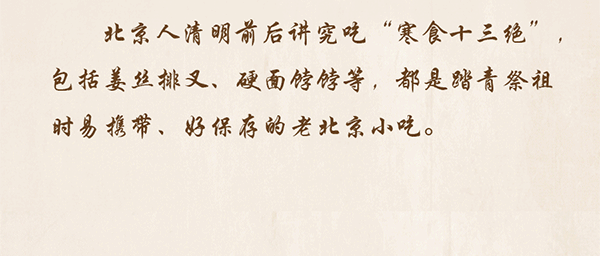 北京人清明前后讲究吃“寒食十三绝”，
包括姜丝排叉、硬面饽饽等，都是踏青祭祖
时易携带、好保存的老北京小吃。